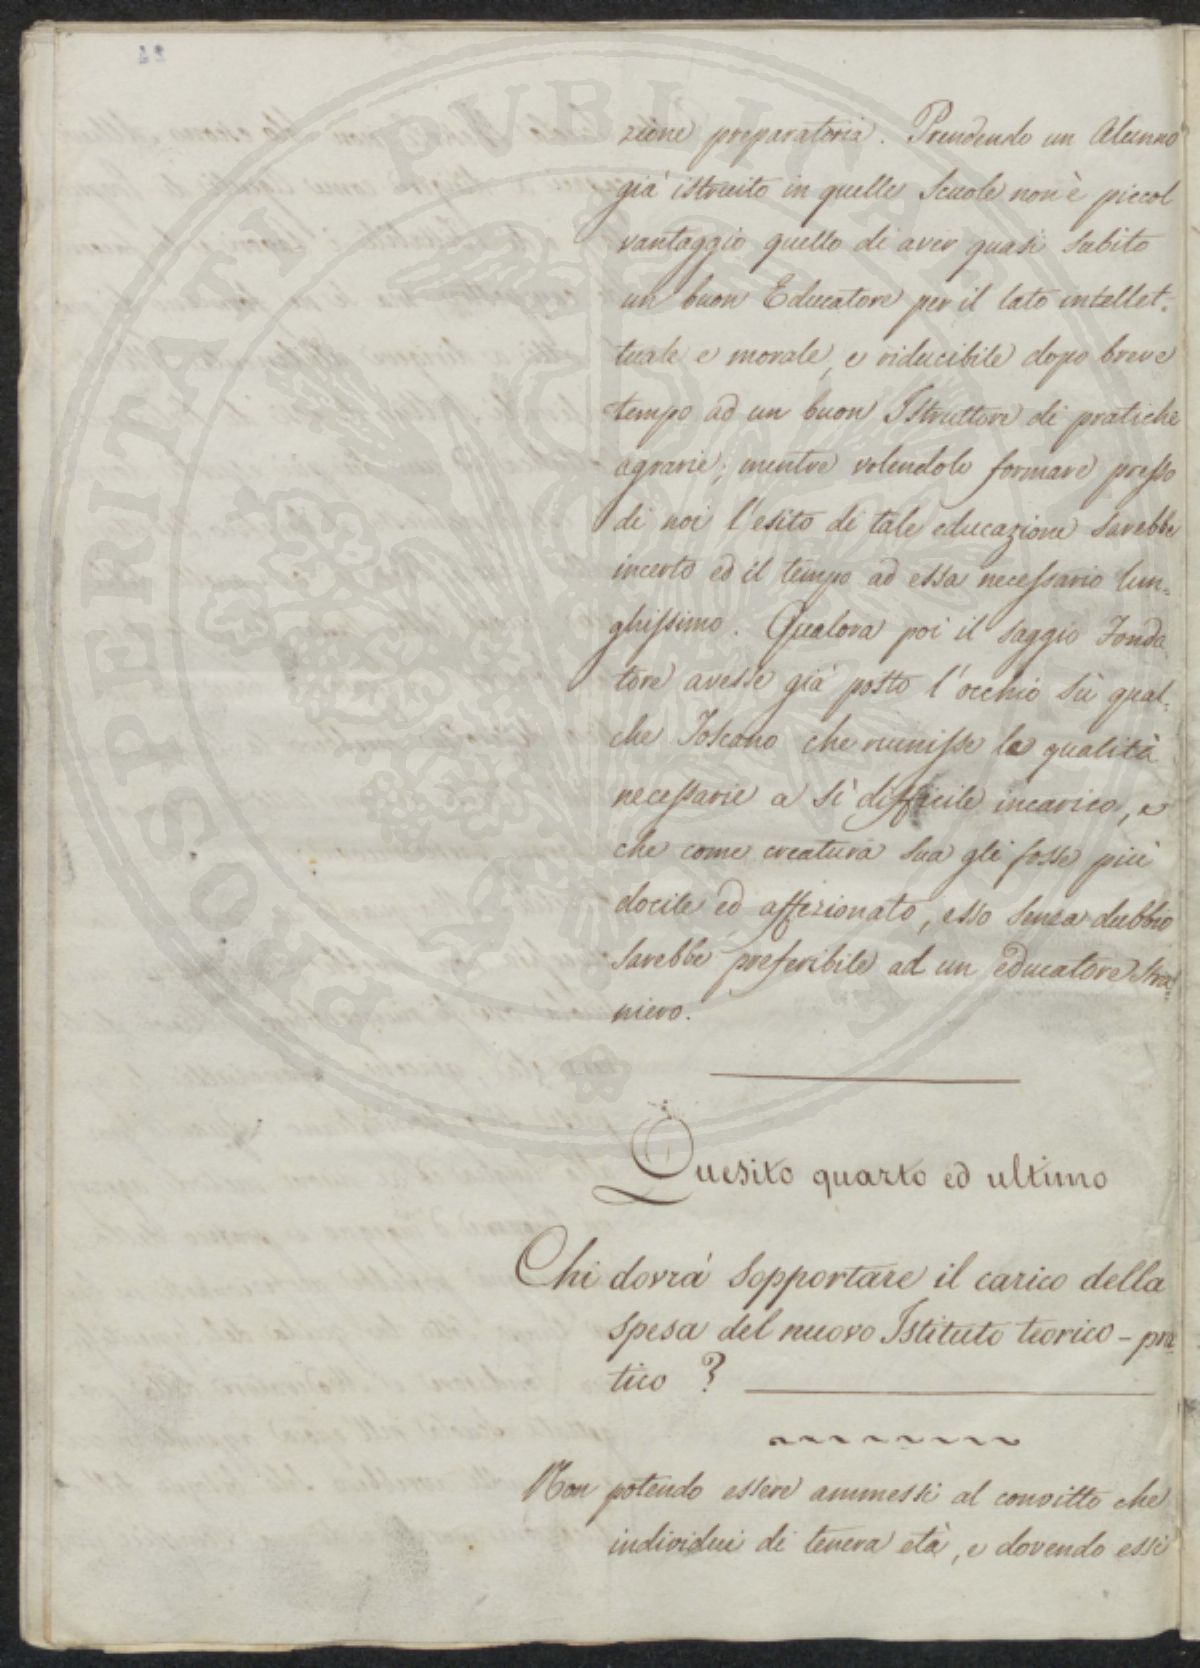 zione preparatoria. Prendendo un Alunno
già istruito in quelle Scuole non è piccol
vantaggio quello di aver quasi subito
un buon Educatore per il lato intellet-
tuale e morale, e riducibile dopo breve
tempo ad un buon Istruttore di pratiche
agrarie; mentre volendolo formare presso
di noi l'esito di tale educazione sarebbe
incerto ed il tempo ad essa necessario lun-
ghissimo. Qualora poi il saggio Fonda-
tore avesse già posto l'occhio sù qual-
che Toscano che riunisse le qualità
necessarie a sì difficile incarico, e
che come creatura sua gli fosse più
docile ed affezionato, esso senza dubbio
sarebbe preferibile ad un educatore stra-
niero.
Quesito quarto ed ultimo
Chi dovrà sopportare il carico della
spesa del nuovo Istituto teorico-pra-
tico?
Non potendo essere ammessi al convitto che
individui di tenera età, e dovendo essi
PROSPERITATI PUBLICAE